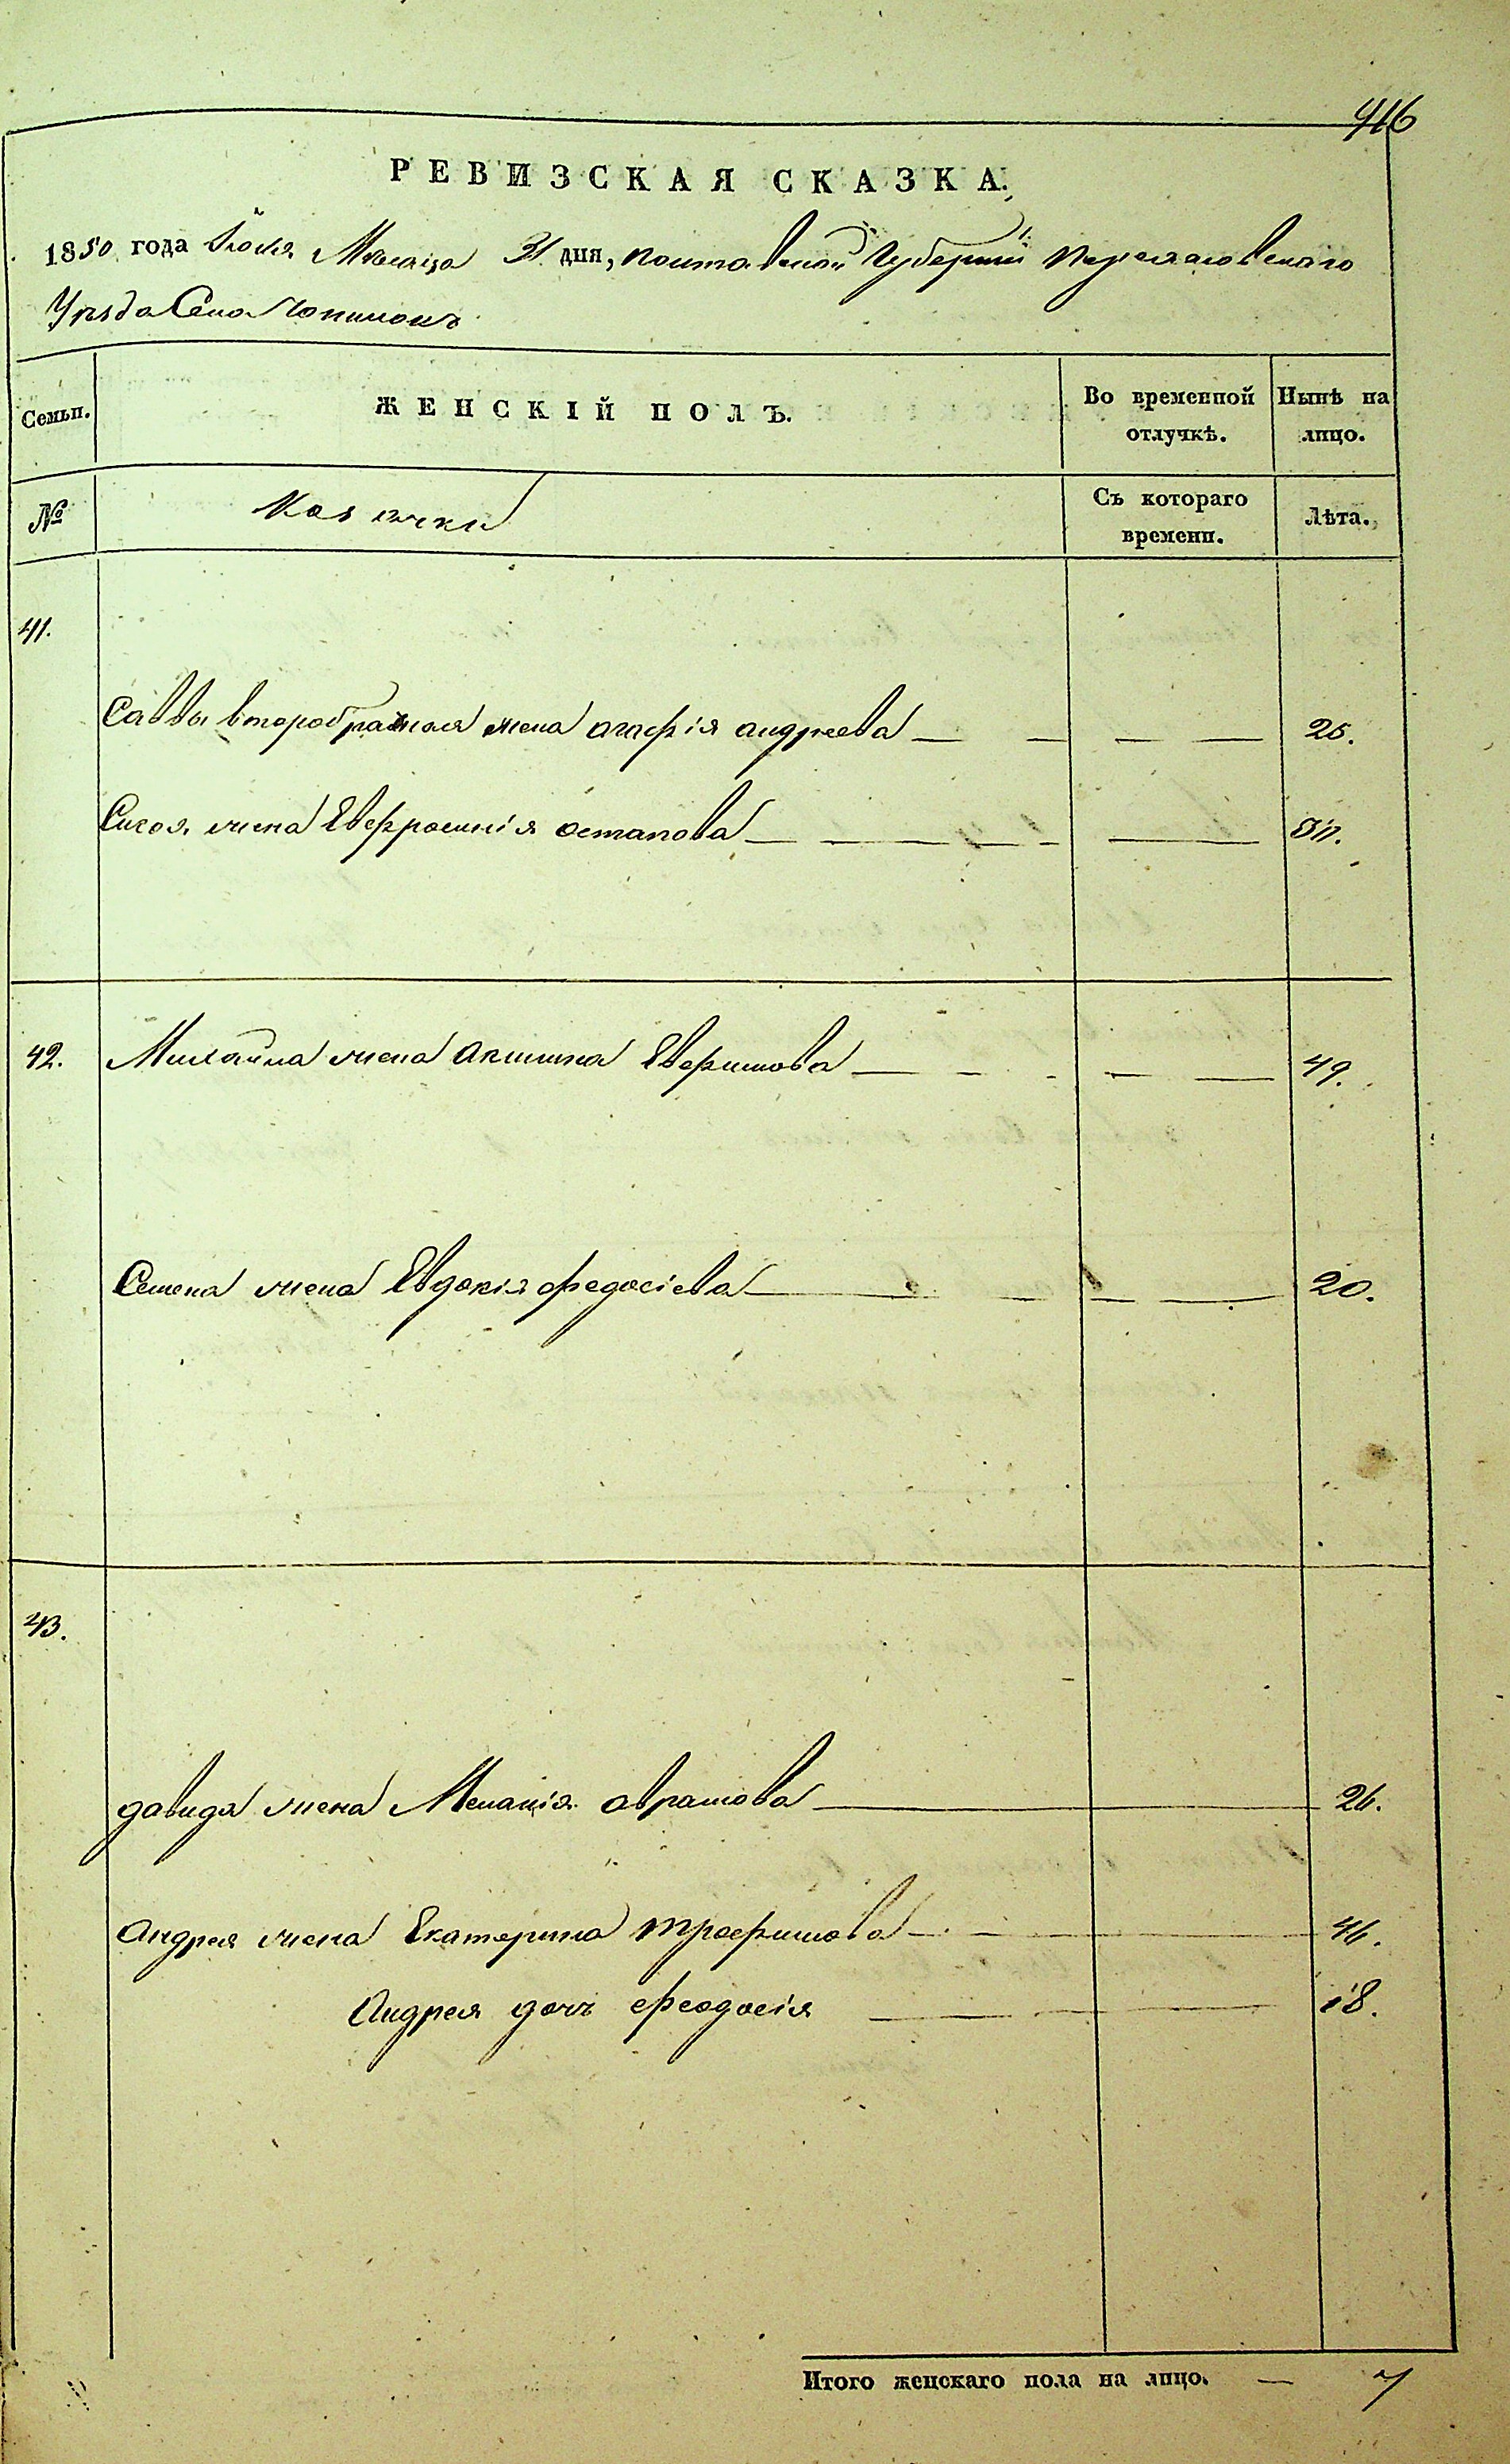 416
РЕВИЗСКАЯ СКАЗКА.
1850 года Іюля Месяца 31 дня, полтавской Губерніи переяславскаго
Уѣзда Села Чопилокъ
Семьи.
ЖЕНСКІЙ ПОЛЪ.
Во временной отлучкѣ.
Нынѣ на лицо.
№
Козачки
Съ котораго времени.
Лѣта.
41.
Саввы второбрачная жена агафія андреева — — — — 25.
жена Евфросинія остапова — — — — —
42. Михайла жена Акилина Евфимова — — - — — 49.
Семена жена Евдокія федосіева — — — — 20.
43.
давида жена Меланія аврамова — 26.
андрея жена Екатерина трофимова — — — 46.
Андрея дочь феодосія — — 18.
Итого женскаго пола на лицо. — 7